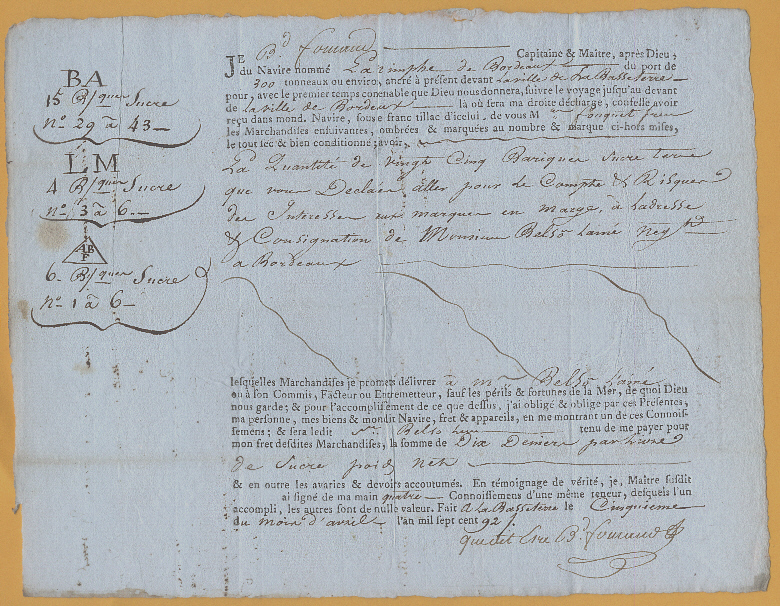 BA
15 B/ques Sucre
no. 29 à 43
LM
4 B/ques Sucre
no. 3 à 6
AB
F
6 B/ques Sucre
no. 1 à 6
JE Bd fouraud Capitaine & Maître, après Dieu,
du Navire nommé La nimphe de Bordeaux du port de
300 tonneaux ou enviro, ancré à présent devant la ville de La Basseterre
pour, avec le premier temps conenable que Dieu nous donnera, suivre le voyage jusqu'au devant
de la ville de Bordeux là où sera ma droite décharge, confesse avoir
reçu dans mond. Navire, sous e franc tillac d'icelui, de vous M fouquet
les Marchandises ensuivantes, ombrées & marquées au nombre & marque ci-hors mises,
le tout sec & bien conditionné; avoir,
La Quantité de vingt Cinq Bariques Sucre terré
que vous Declaré aller pour le Compte & Risques
des Interesses aux marques en marge, à ladresse
& Consignation de Monsieur Belso Lainé neg
a Bordeaux
lesquelles Marchandises je promets délivrer à mr Belso Lainé
ou à son Commis, Facteur ou Entremetteur, sauf les périls & fortunes de la Mer, de quoi Dieu
nous garde; & pour l'accomplissement de ce que dessus, j'ai obligé & oblige par ces Présentes,
ma personne, mes biens & mondit Navire, fret & appareils, en me montrant un de ces Connois-
semens; & sera ledit Belso Lainé tenu de me payer pour
mon fret desdites Marchandises, la somme de Dix Deniers par Livre
de Sucre poids net
& en outre les avaries & devoirs accoutumés. En témoignage de vérité, je, Maître susdit
ai signé de ma main quatre Connoissemens d'une même teneur, desquels l'un
accompli, les autres sont de nulle valeur. Fait A la Basseterre le Cinquieme
du mois d'avril l'an mil sept cent 92
que dit Etre Bd fouraud